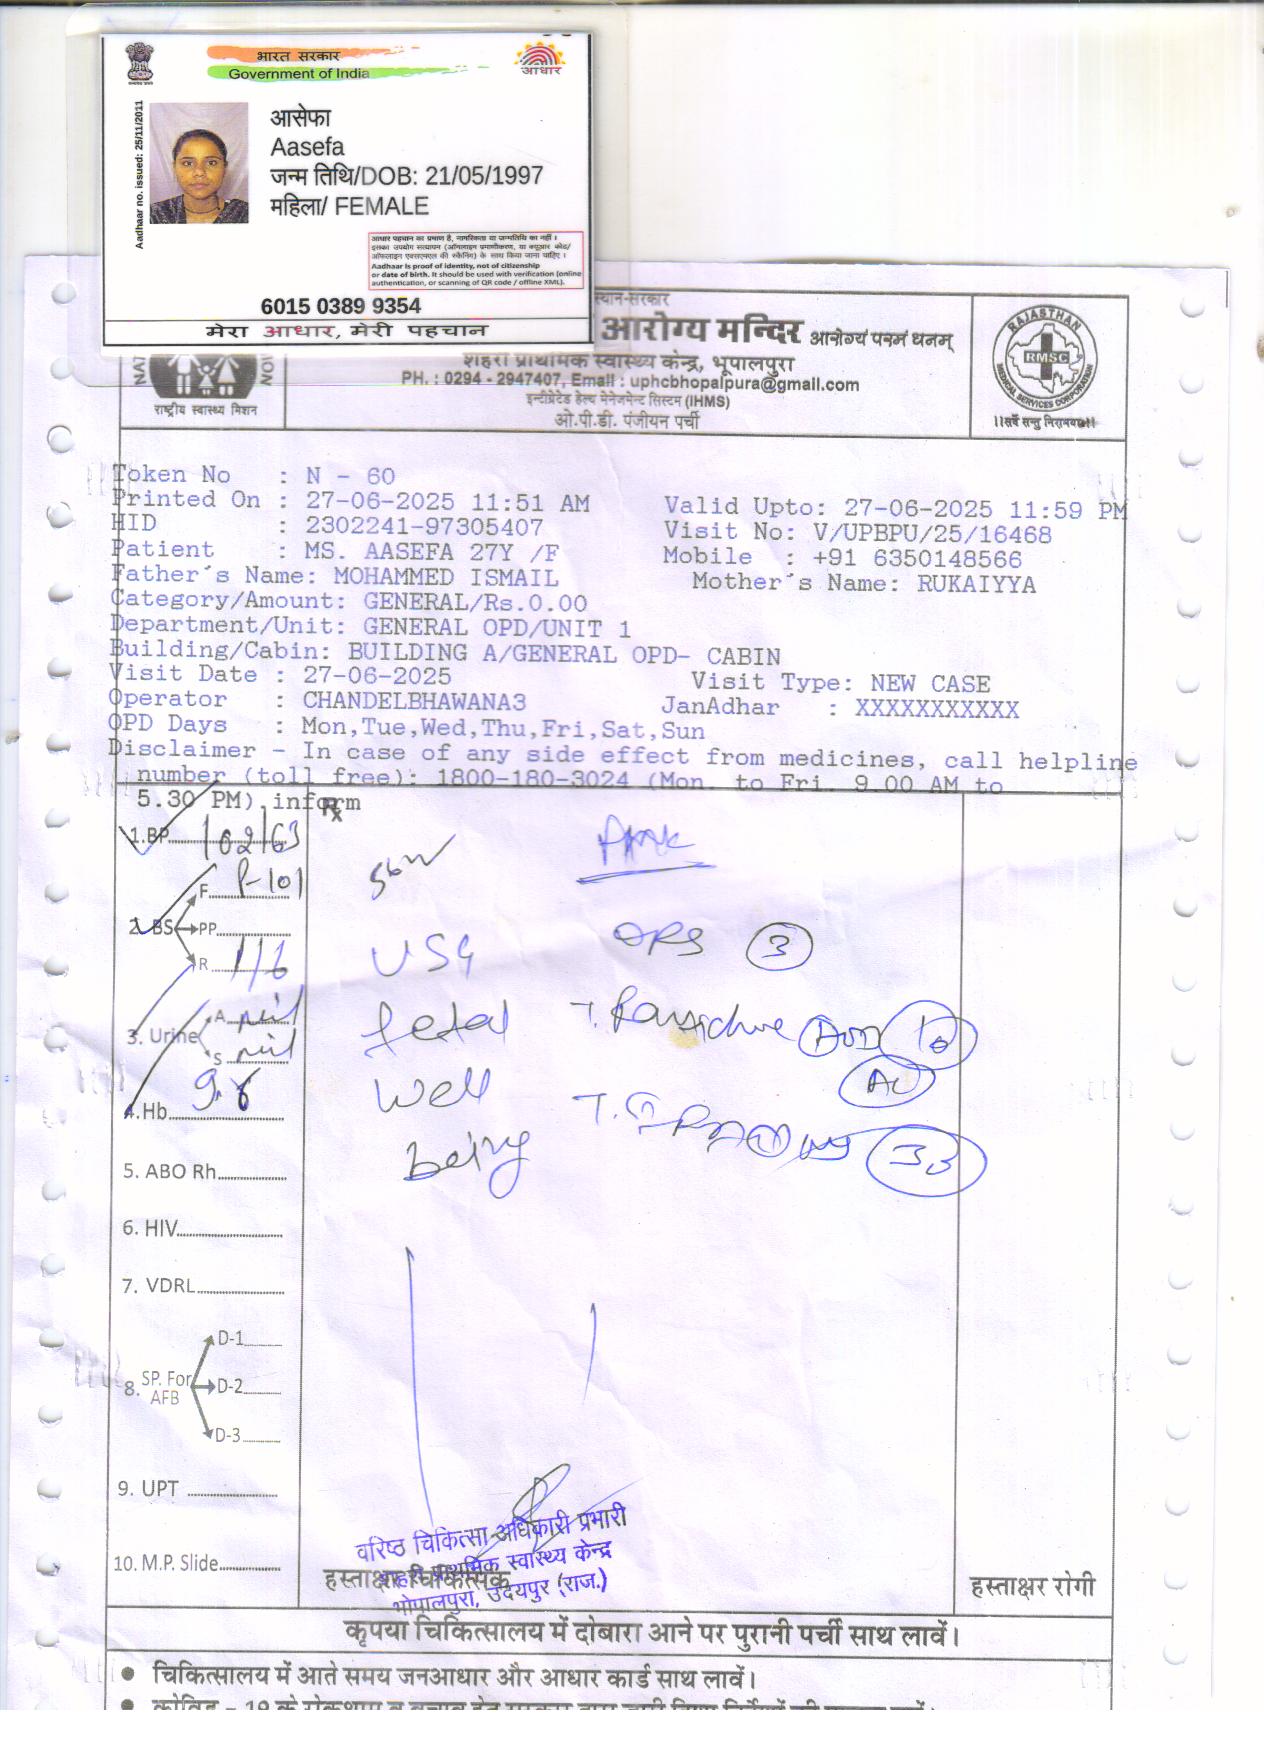 भारत सरकार
Government of India
आधार
Aadhaar no. issued: 25/11/2011
आसेफा
Aasefa
जन्म तिथि/DOB: 21/05/1997
महिला/ FEMALE
आधार पहचान का प्रमाण है, नागरिकता या जन्मतिथि का नहीं ।
इसका उपयोग सत्यापन (ऑनलाइन प्रमाणीकरण, या क्यूआर कोड/
ऑफलाइन एक्सएमएल की स्कैनिंग) के साथ किया जाना चाहिए ।
Aadhaar is proof of identity, not of citizenship
or date of birth. It should be used with verification (online
authentication, or scanning of QR code / offline XML).
6015 0389 9354
मेरा आधार, मेरी पहचान
स्थान-सरकार
आरोग्य मन्दिर आरोग्यं परमं धनम्
शहरी प्राथमिक स्वास्थ्य केन्द्र, भूपालपुरा
PH. : 0294 - 2947407, Email : uphcbhopalpura@gmail.com
इन्टीग्रेटेड हेल्थ मेनेजमेन्ट सिस्टम (IHMS)
ओ.पी.डी. पंजीयन पर्ची
राष्ट्रीय स्वास्थ्य मिशन
RAJASTHAN
RMSC
MEDICAL SERVICES CORPORATION
।।सर्वे सन्तु निरामयाः।।
Token No : N - 60
Printed On : 27-06-2025 11:51 AM Valid Upto: 27-06-2025 11:59 PM
HID : 2302241-97305407 Visit No: V/UPBPU/25/16468
Patient : MS. AASEFA 27Y /F Mobile : +91 6350148566
Father´s Name: MOHAMMED ISMAIL Mother´s Name: RUKAIYYA
Category/Amount: GENERAL/Rs.0.00
Department/Unit: GENERAL OPD/UNIT 1
Building/Cabin: BUILDING A/GENERAL OPD- CABIN
Visit Date : 27-06-2025 Visit Type: NEW CASE
Operator : CHANDELBHAWANA3 JanAdhar : XXXXXXXXXXX
OPD Days : Mon,Tue,Wed,Thu,Fri,Sat,Sun
Disclaimer - In case of any side effect from medicines, call helpline
number (toll free): 1800-180-3024 (Mon. to Fri. 9.00 AM to
5.30 PM) inform
Rx
1.BP 102/63
2. BS F P-101
PP
R
3. Urine A nil
S nil
4.Hb 9.8
5. ABO Rh
6. HIV
7. VDRL
8. SP. For AFB D-1
D-2
D-3
9. UPT
10. M.P. Slide
USG
fetal
well
being
ORS 3
वरिष्ठ चिकित्सा अधिकारी प्रभारी
शहरी प्राथमिक स्वास्थ्य केन्द्र
भोपालपुरा, उदयपुर (राज.)
हस्ताक्षर चिकित्सक
हस्ताक्षर रोगी
कृपया चिकित्सालय में दोबारा आने पर पुरानी पर्ची साथ लावें।
● चिकित्सालय में आते समय जनआधार और आधार कार्ड साथ लावें।